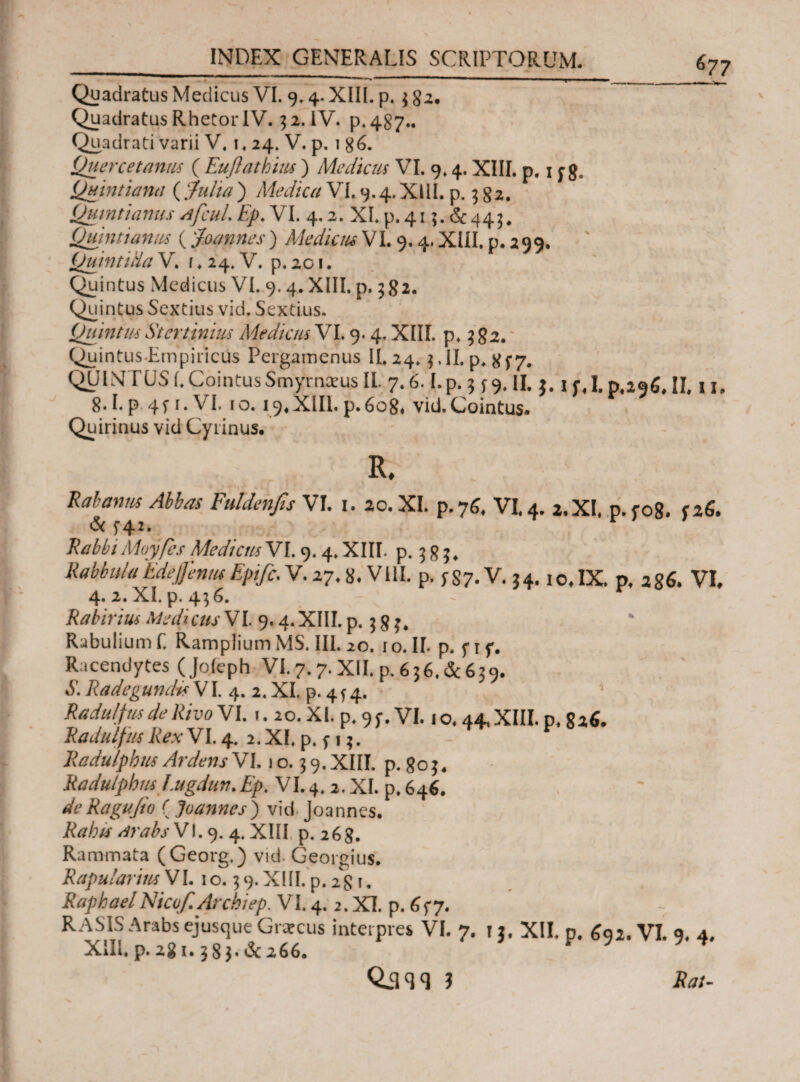 INDEX GENERALIS SCRIPTORUM. 677
Quadratus Medicus VI. 9. 4. XIII. p. 382.
Quadratus Rhetor IV. 32. IV. p. 487..
Quadrati varii V. 1. 24. V. p. 186.
Quercetanus (Eustathius) Medicus VI. 9. 4. XIII. p. 158.
Quintiana (Julia) Medica VI. 9. 4. XIII. p. 382.
Quintianus Ascul. Ep. VI. 4. 2. XI. p. 413. & 443.
Quintianus (Joannes) Medicus VI. 9. 4. XIII. p. 299.
Quintilla V. 1. 24. V. p. 201.
Quintus Medicus VI. 9. 4. XIII. p. 382.
Quintus Sextius vid. Sextius.
Quintus Stertinius Medicus VI. 9. 4. XIII. p. 382.
Quintus Empiricus Pergamenus II. 24. 3. II. p. 857.
QUINTUS f. Cointus Smyrnæus II. 7. 6. I. p. 359. II. 3. 15. I. p. 296. II. 11.
8. I. p. 451. VI. 10. 19. XIII. p. 608. vid. Cointus.
Quirinus vid Cyrinus.
R.
Rabanus Abbas Fuldensis VI. 1. 20. XI. p. 76. VI. 4. 2. XI. p. 508. 526.
& 542.
Rabbi Moyses Medicus VI. 9. 4. XIII. p. 383.
Rabbula Edessenus Episc. V. 27. 8. VIII. p. 587. V. 34. 10. IX. p. 286. VI.
4. 2. XI. p. 436.
Rabirius Medicus VI. 9. 4. XIII. p. 383.
Rabulium f. Ramplium MS. III. 20. 10. II. p. 515.
Racendytes (Joseph VI. 7. 7. XII. p. 636. & 639.
S. Radegundis VI. 4. 2. XI. p. 454.
Radulfus de Rivo VI. 1. 20. XI. p. 95. VI. 10. 44. XIII. p. 826.
Radulfus Rex VI. 4. 2. XI. p. 513.
Radulphus Ardens VI. 10. 39. XIII. p. 803.
Radulphus Lugdun. Ep. VI. 4. 2. XI. p. 646.
de Ragusio (Joannes) vid Joannes.
Rahis Arabs VI. 9. 4. XIII p. 268.
Rammata (Georg.) vid. Georgius.
Rapularius VI. 10. 39. XIII. p. 281.
Raphael Nicos. Archiep. VI. 4. 2. XI. p. 657.
RASIS Arabs ejusque Græcus interpres VI. 7. 13. XII. p. 692. VI. 9. 4.
XIII. p. 281. 383. & 266.
Qqqq 3 Rat-